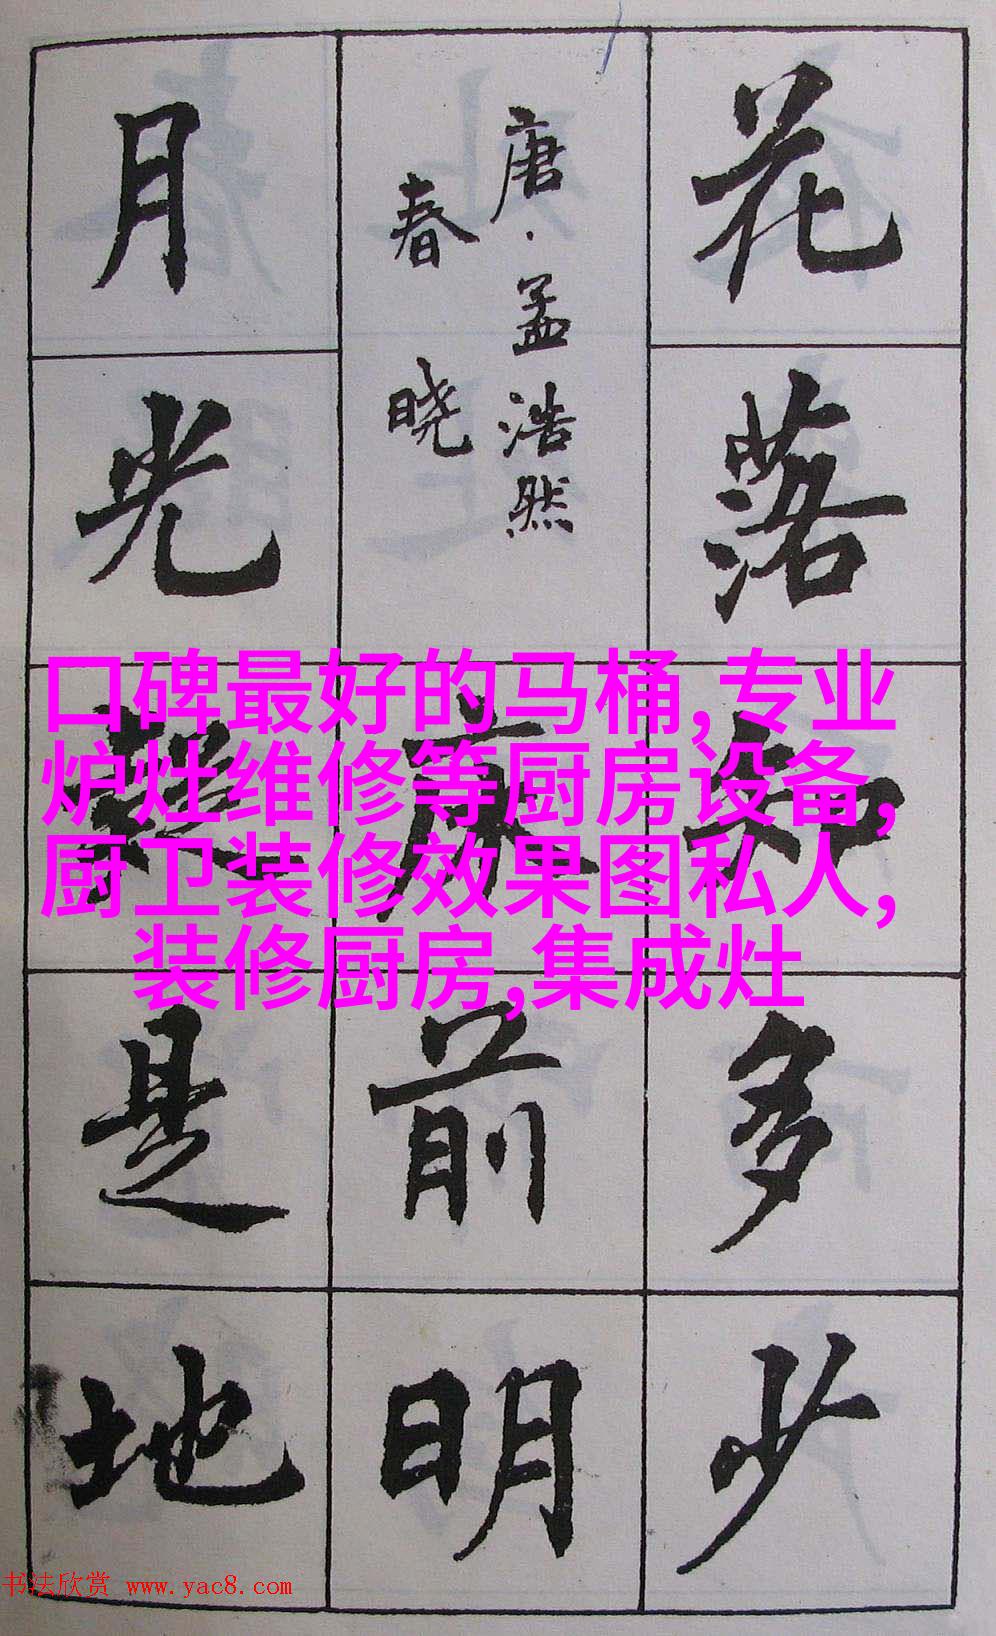 花落知多少
唐·孟浩然
春晓
床前明
月光疑是地
口碑最好的马桶,专业
炉灶维修等厨房设备,
厨卫装修效果图私人,
装修厨房,集成灶
书法欣赏 www.yac8.com